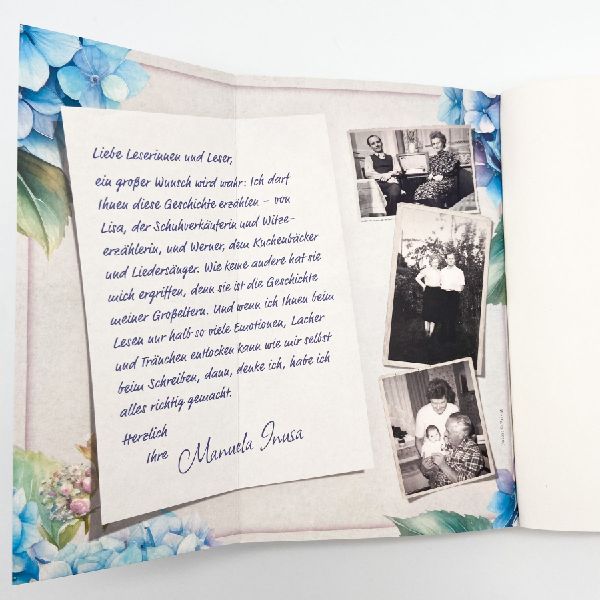 Liebe Leserinnen und Leser,
ein großer Wunsch wird wahr: Ich darf
Ihnen diese Geschichte erzählen – von
Lisa, der Schuhverkäuferin und Witze-
erzählerin, und Werner, dem Kuchenbäcker
und Liedersänger. Wie keine andere hat sie
mich ergriffen, denn sie ist die Geschichte
meiner Großeltern. Und wenn ich Ihnen beim
Lesen nur halb so viele Emotionen, Lacher
und Tränchen entlocken kann wie mir selbst
beim Schreiben, dann, denke ich, habe ich
alles richtig gemacht.
Herzlich
Ihre Manuela Inusa